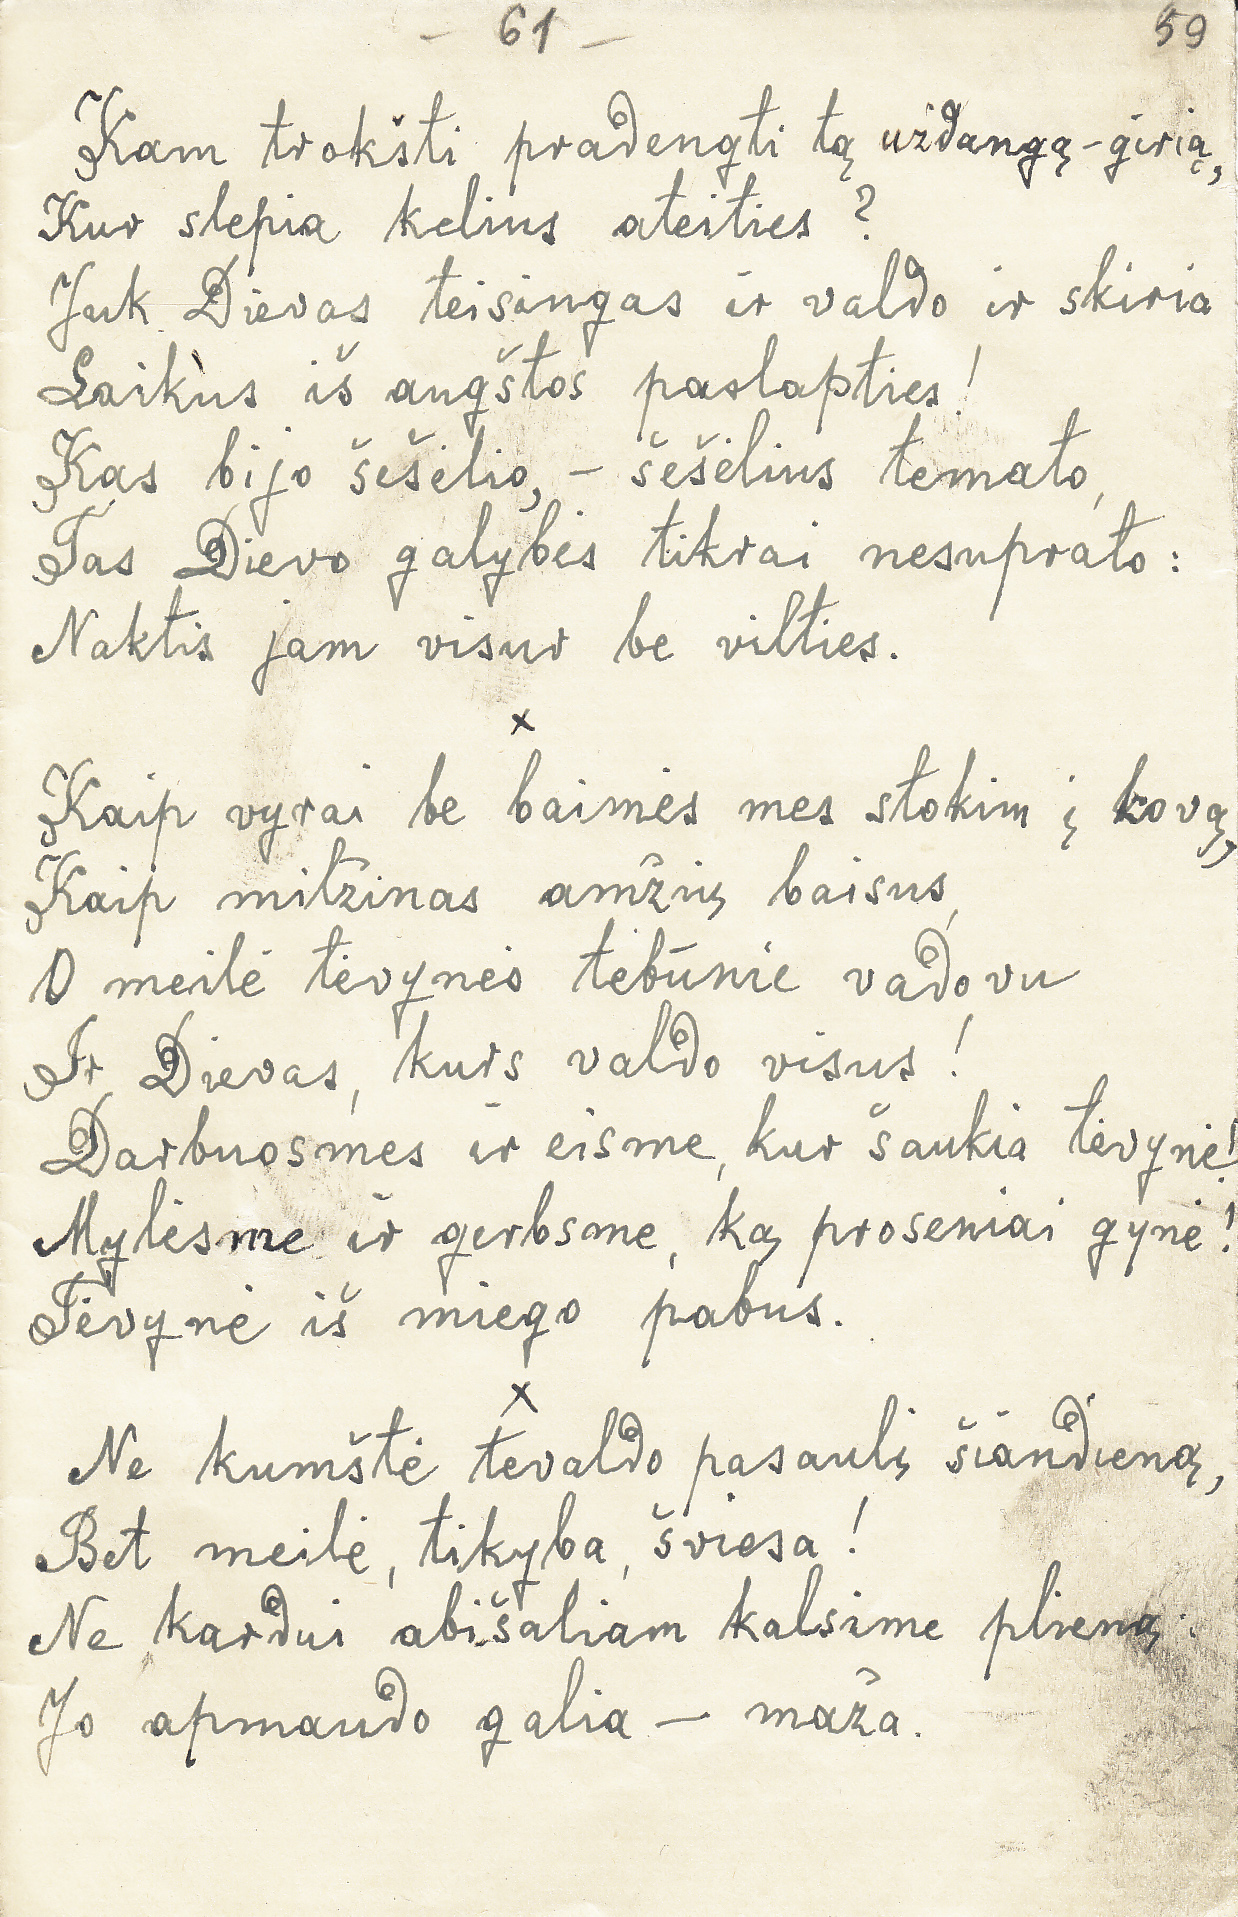 - 61 -
59
Kam trokšti pradengti tą uždangą-girią,
Kur slepia kelius ateities?
Juk Dievas teisingas ir valdo ir skiria
Laikus iš augštos paslapties!
Kas bijo šešėlio, - šešėlius temato,
Tas Dievo galybės tikrai nesuprato:
Naktis jam visur be vilties.
x
Kaip vyrai be baimės mes stokim į kovą,
Kaip milžinas amžių baisus,
O meilė tėvynės tebūnie vadovu
Ir Dievas, kurs valdo visus!
Darbuosmės ir eisme, kur šaukia tėvynė!
Mylėsme ir gerbsme, ką proseniai gynė!
Tėvynė iš miego pabus.
x
Ne kumštė tevaldo pasaulį šiandieną,
Bet meilė, tikyba, šviesa!
Ne kardui abišaliam kalsime plieną:
Jo apmaudo galia — maža.